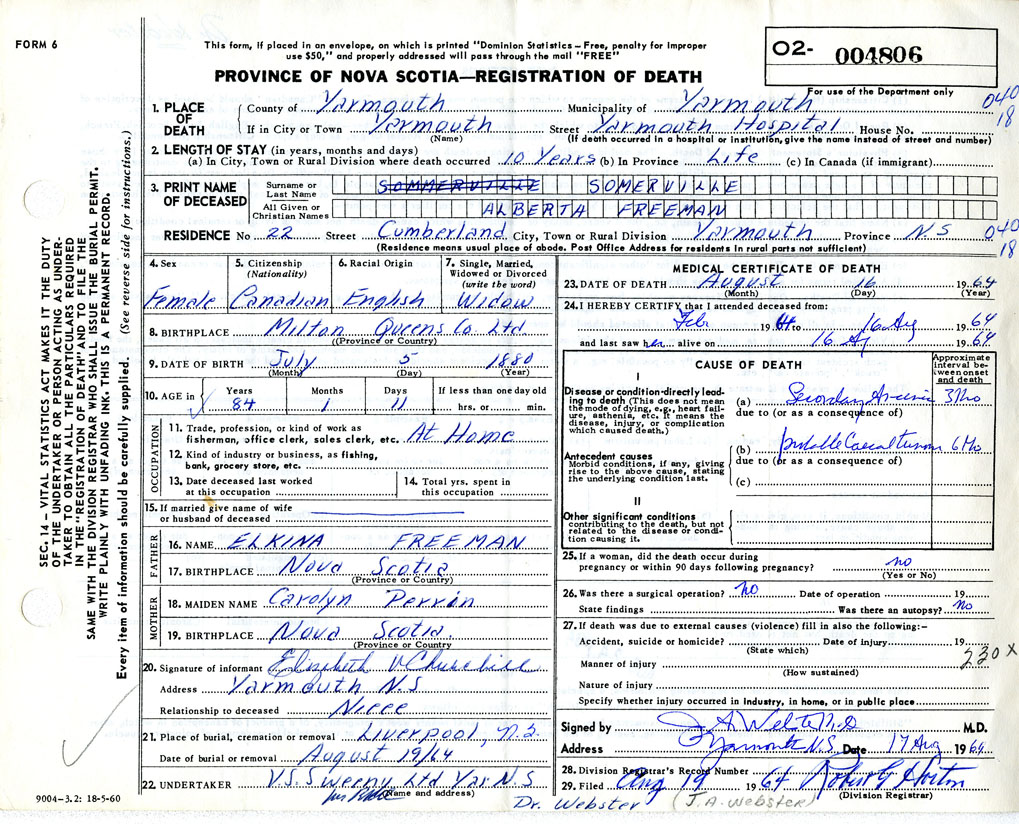 FORM 6
This form, if placed in an envelope, on which is printed "Dominion Statistics – Free, penalty for improper
use $50," and properly addressed will pass through the mail "FREE"
PROVINCE OF NOVA SCOTIA—REGISTRATION OF DEATH
O2- 004806
For use of the Department only
040
18
1. PLACE OF DEATH
County of Yarmouth Municipality of Yarmouth
If in City or Town Yarmouth Street Yarmouth Hospital House No.
(Name) (If death occurred in a hospital or institution, give the name instead of street and number)
2. LENGTH OF STAY (in years, months and days)
(a) In City, Town or Rural Division where death occurred 10 Years (b) In Province Life (c) In Canada (if immigrant)
3. PRINT NAME OF DECEASED
Surname or Last Name SOMMERVILLE SOMERVILLE
All Given or Christian Names ALBERTA FREEMAN
RESIDENCE No 22 Street Cumberland City, Town or Rural Division Yarmouth Province N.S
(Residence means usual place of abode. Post Office Address for residents in rural parts not sufficient)
040
18
4. Sex Female
5. Citizenship (Nationality) Canadian
6. Racial Origin English
7. Single, Married, Widowed or Divorced (write the word) Widow
8. BIRTHPLACE Milton Queens Co Ltd
(Province or Country)
9. DATE OF BIRTH July 5 1880
(Month) (Day) (Year)
10. AGE in Years 84 Months 1 Days 11 If less than one day old hrs. or min.
OCCUPATION
11. Trade, profession, or kind of work as
fisherman, office clerk, sales clerk, etc. At Home
12. Kind of industry or business, as fishing,
bank, grocery store, etc.
13. Date deceased last worked
at this occupation
14. Total yrs. spent in
this occupation
15. If married give name of wife
or husband of deceased
FATHER
16. NAME ELKINA FREEMAN
17. BIRTHPLACE Nova Scotia
(Province or Country)
MOTHER
18. MAIDEN NAME Carolyn Perrin
19. BIRTHPLACE Nova Scotia.
(Province or Country)
20. Signature of informant Elizabeth V Churchill
Address Yarmouth N.S
Relationship to deceased Niece
21. Place of burial, cremation or removal Liverpool, N.S.
Date of burial or removal August 19/64
22. UNDERTAKER V.S. Sweeny Ltd Yar N.S
(Name and address)
9004–3.2: 18-5-60
MEDICAL CERTIFICATE OF DEATH
23. DATE OF DEATH August 16 1964
(Month) (Day) (Year)
24. I HEREBY CERTIFY that I attended deceased from:
Feb 1964 to 16 Ag 1964
and last saw her alive on 16 Ag 1964
CAUSE OF DEATH
Approximate interval between onset and death
I
Disease or condition directly leading to death (This does not mean the mode of dying, e.g., heart failure, asthenia, etc. It means the disease, injury, or complication which caused death.)
(a) Secondary 3 Mo
due to (or as a consequence of)
Antecedent causes
Morbid conditions, if any, giving rise to the above cause, stating the underlying condition last.
(b) probable 6 Mo
due to (or as a consequence of)
(c)
II
Other significant conditions
contributing to the death, but not related to the disease or condition causing it.
25. If a woman, did the death occur during
pregnancy or within 90 days following pregnancy? no
(Yes or No)
26. Was there a surgical operation? no Date of operation 19
State findings Was there an autopsy? No
27. If death was due to external causes (violence) fill in also the following:–
Accident, suicide or homicide? Date of injury 19
(State which)
230 X
Manner of injury
(How sustained)
Nature of injury
Specify whether injury occurred in industry, in home, or in public place
Signed by J A Webster M.D.
Address Yarmouth N.S. Date 17 Aug 1964
28. Division Registrar's Record Number
29. Filed Aug 19 1964 Robert G Horton
(Division Registrar)
Dr. Webster (J.A. Webster)
SEC. 14 – VITAL STATISTICS ACT MAKES IT THE DUTY
OF THE UNDERTAKER OR PERSON ACTING AS UNDER-
TAKER TO OBTAIN ALL THE PARTICULARS REQUIRED
IN THE "REGISTRATION OF DEATH" AND TO FILE THE
SAME WITH THE DIVISION REGISTRAR WHO SHALL ISSUE THE BURIAL PERMIT.
WRITE PLAINLY WITH UNFADING INK. THIS IS A PERMANENT RECORD.
Every item of information should be carefully supplied. (See reverse side for instructions.)